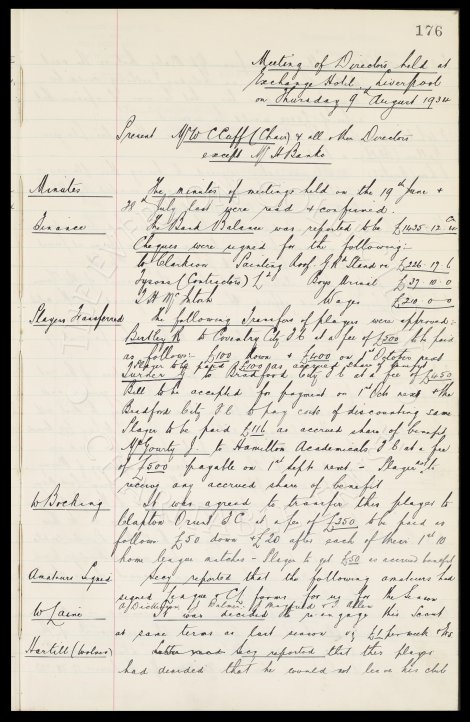 176
Meeting of Directors held at
Exchange Hotel, Liverpool
on Thursday 9th August 1934
Present Mr W C Cuff (Chair) & all other Directors
except Mr H Banks
Minutes The minutes of meetings held on the 19th June &
28th July last were read & confirmed.
Finance The Bank Balance was reported to be £1435-12
Cheques were signed for the following:-
to Clarkson Painting Roof G Rd Stand £226-17-6
Tysons (Contractors) Ld Boys £37-10-0
T H McIntosh Wages £210-0-0
Players Transferred The following Transfers of players were approved:-
to Coventry City F C at a fee of £500 to be paid
as follows: £100 down & £400 on 1st October next
Player to be paid £100 as accrued share of benefit
to Bradford City F C at a fee of £450
Bill to be accepted for payment on 1st Oct next & the
Bradford City F C to pay costs of discounting same
Player to be paid £116 as accrued share of benefit
McGourty J. to Hamilton Academicals F C at a fee
of £500 payable on 1st Sept next - Player not to
receive any accrued share of benefit
W Bocking It was agreed to transfer this player to
Clapton Orient F C at a fee of £350 to be paid as
follows £50 down & £20 after each of their 1st 10
home league matches - Player to get £50 as accrued benefit
Amateurs Signed Secy reported that the following amateurs had
signed League & C A forms for us for the season
A J Dickinson,
W Laine It was decided to re-engage this Scout
at same terms as last season vz £2 per week & Exs
Hartill (Wolves) Secy reported that this player
had decided that he would not leave his club